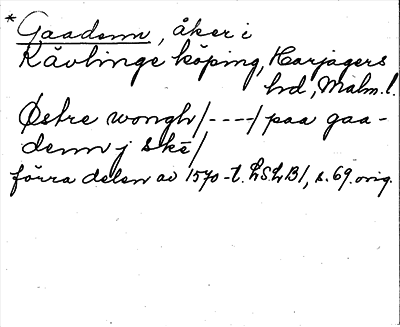 * Gaadenn, åker i
Kävlinge köping, Harjagers
hd, Malm. l.
Østre wongh /----/ paa gaa-
denn j skē /
förra delen av 1570-t. LSLB1, s. 69. orig.